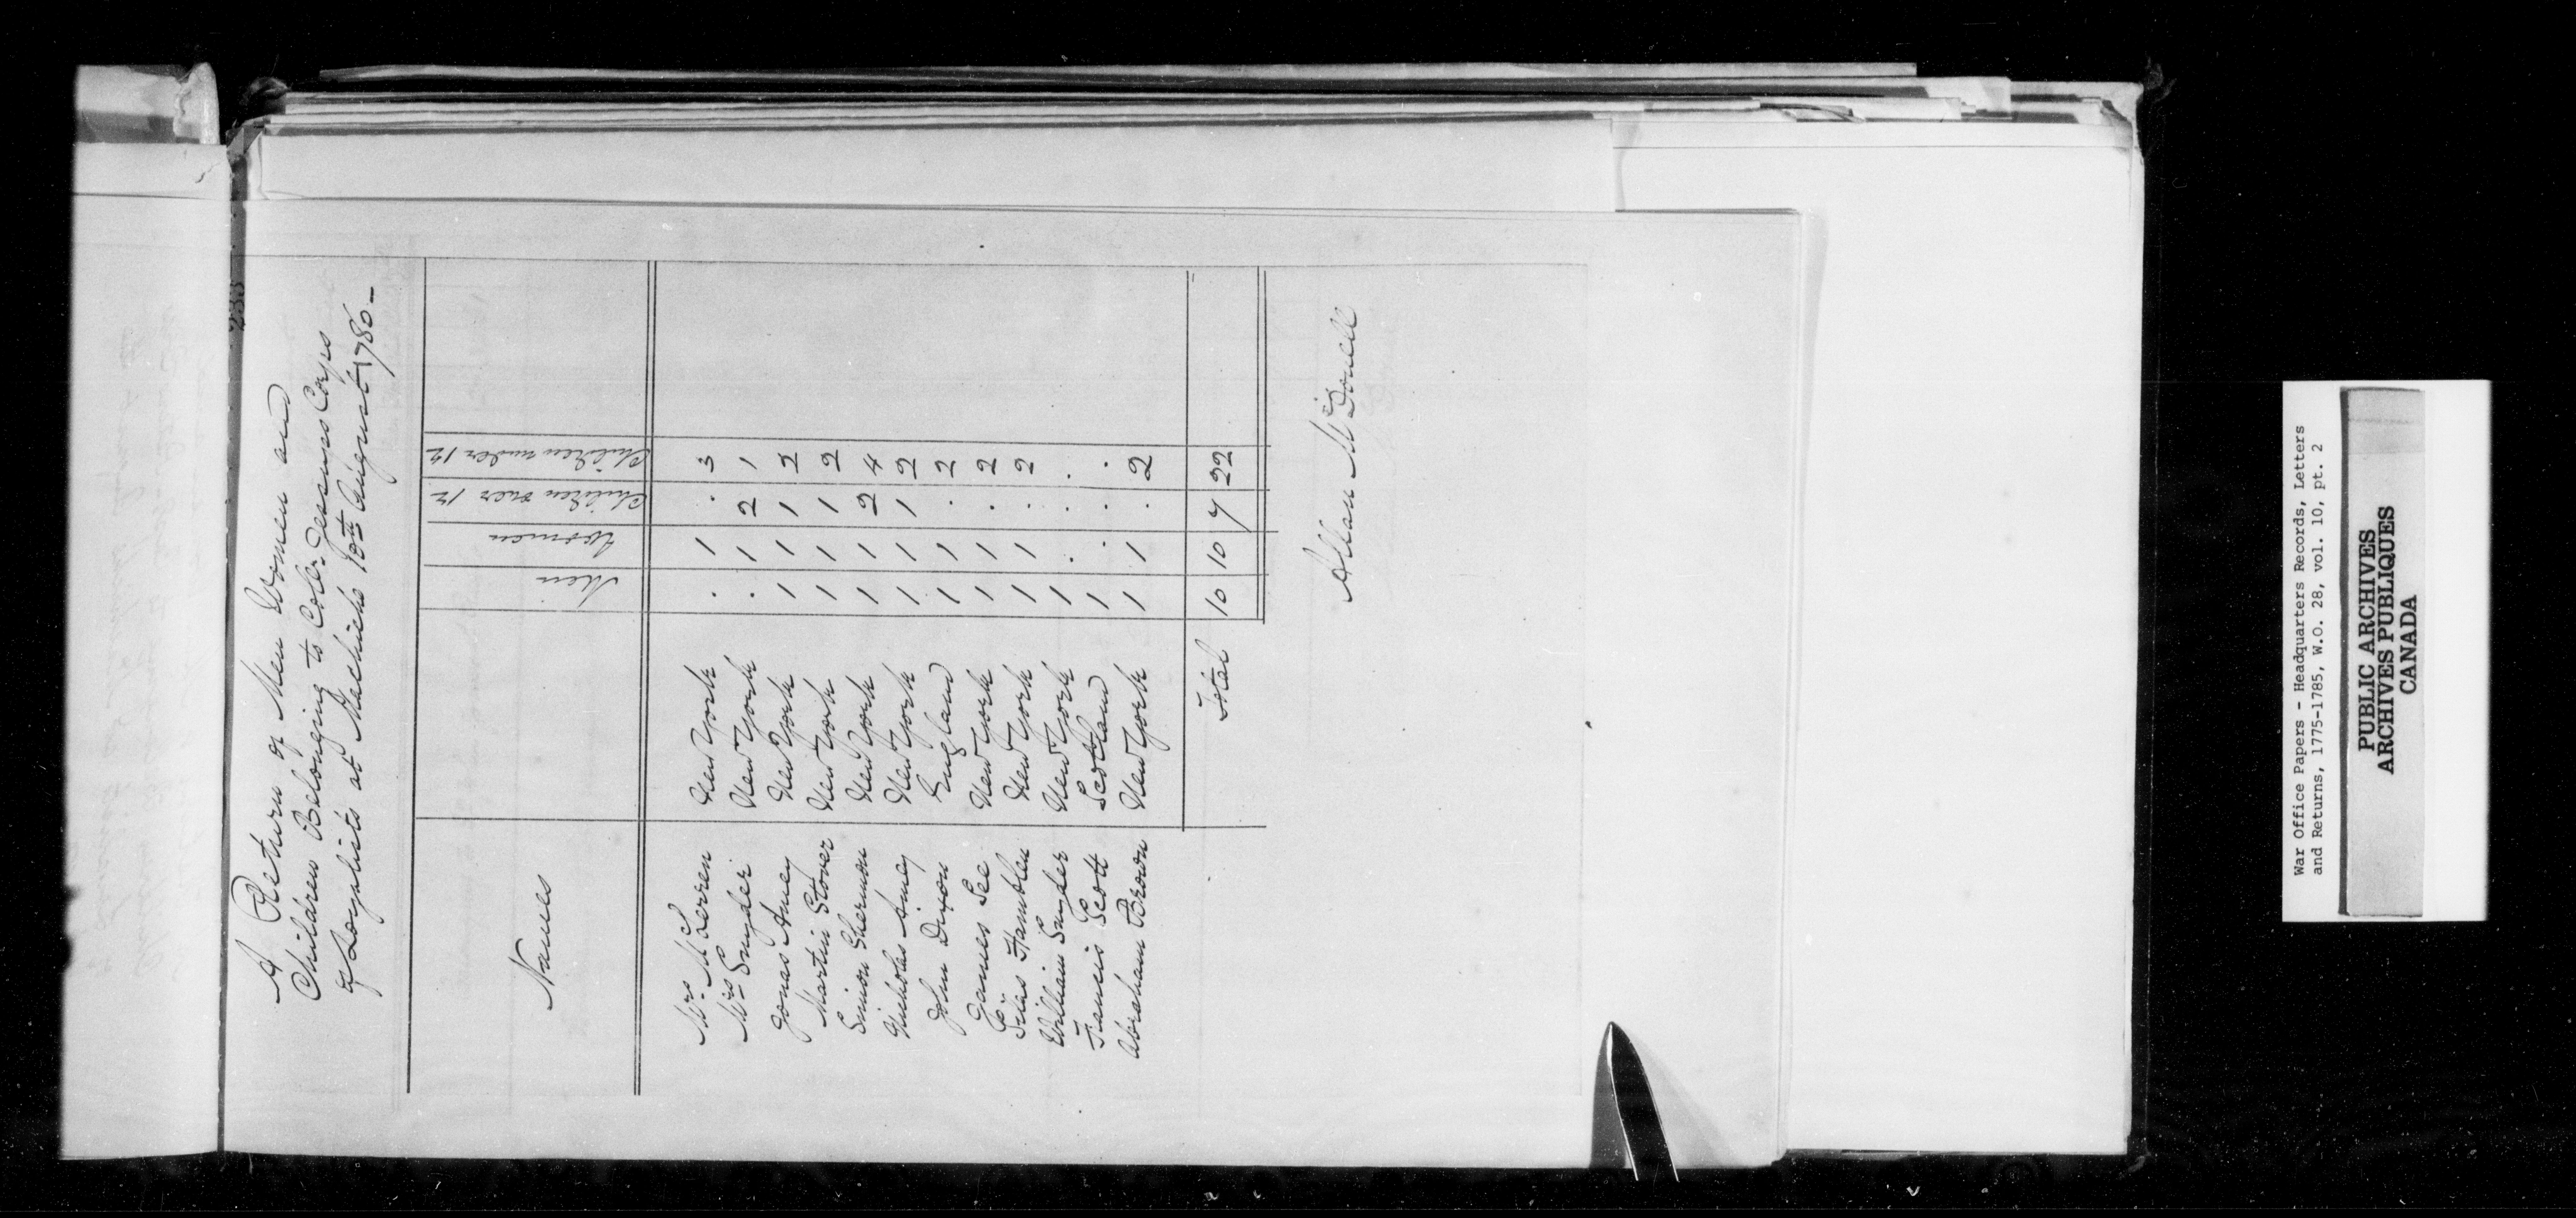 233
A Return of Men Women and
Children Belonging to Col. Jessups Corps
of Loyalists at Machiche 10th August 1780 -
Names Men Women Children over 12 Children under 12
Mrs. McLorren New York . 1 . 3
Mrs Snyder New York . 1 2 1
Jonas Amey New York 1 1 1 2
Martin Stover New York 1 1 1 2
Simion Sherman New York 1 1 2 4
Nicholas Amey New York 1 1 1 2
John Dixon England 1 1 . 2
James See New York 1 1 . 2
Silas Hamblen New York 1 1 . 2
William Snyder New York 1 . . .
Francis Scott Scotland 1 . . .
Abraham Brown New York 1 1 . 2
Total 10 10 7 22
Allan McDonell
War Office Papers - Headquarters Records, Letters
and Returns, 1775-1785, W.O. 28, vol. 10, pt. 2
PUBLIC ARCHIVES
ARCHIVES PUBLIQUES
CANADA